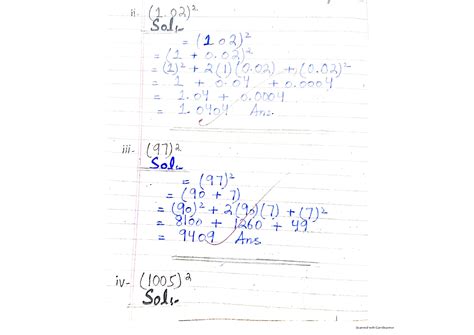 ii. (1.02)²
Sol:-
= (1.02)²
= (1 + 0.02)²
= (1)² + 2(1)(0.02) + (0.02)²
= 1 + 0.04 + 0.0004
= 1.04 + 0.0004
= 1.0404 Ans.
iii- (97)²
Sol:-
= (97)²
= (90 + 7)²
= (90)² + 2(90)(7) + (7)²
= 8100 + 1260 + 49
= 9409 Ans
iv- (1005)²
Sol:-
Scanned with CamScanner